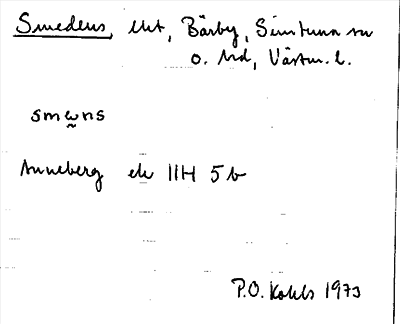 Smedens, lht, Bärby, Simtuna sn
o. hd, Västm. l.
smɯns
Anneberg ek 11H 5b
P.O. Kohls 1973